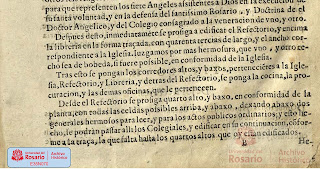 para que representen los siete Angeles assistentes a Dios en la execucion de
su santa voluntad, y en la defensa del santissimo Rosario, y Doctrina de el
Doctor Angelico, y del Colegio consagrado a la veneracion de vno, y otro.
Despues desto, inmediatamẽte se prosiga a edificar el Refectorio, y encima
la libreria en la forma traçada, con quarenta tercias de largo, y el ancho cor-
respondiente a la Iglesia. Iuzgamos por mas hermosura, que vno, y otro te-
cho sea de bobeda, si fuere posible, en conformidad de la Iglesia.
Tras esto se pongan los corredores altos, y baxos, pertenecientes a la Igle-
sia, Refectorio, y Libreria, y detras del Refectorio, se ponga la cocina, la pro-
curacion, y las demas oficinas, que le pertenecen.
Desde el Refectorio se prosiga quarto alto, y baxo, en conformidad de la
planta, con todas las celdas posibles arriba, y abaxo, dexando abaxo dos
generales hermosos para leer, y para los actos publicos ordinarios; y esto he-
cho, se podràn passar alli los Colegiales, y edificar en su continuacion, cõfor-
me a la traça, lo que falta hasta los quartos altos que oy estàn edificados.
B
He
Universidad del
Rosario
Archivo
Histórico
ESSENTE
Universidad del
Rosario
Archivo
Histórico